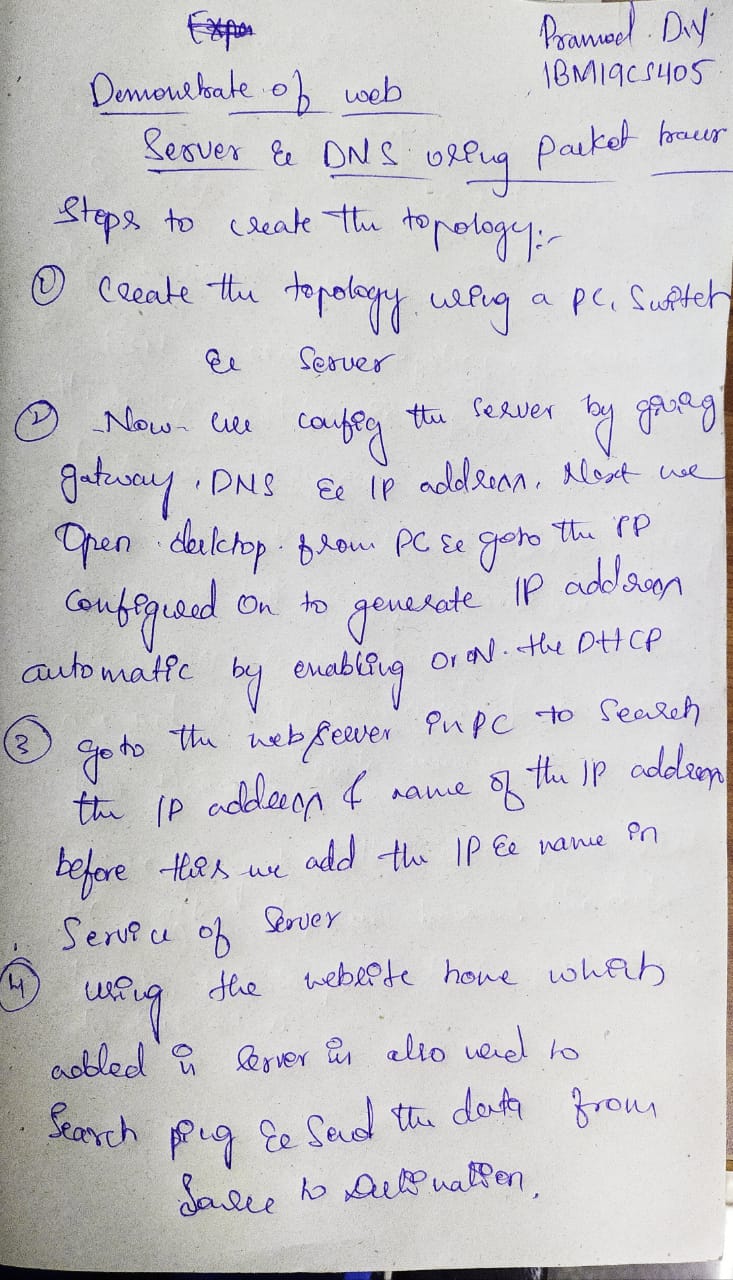 Pramod. D.Y
1BM19CS405
Demonstrate of web
Server & DNS using packet tracer
Steps to create the topology:-
① Create the topology using a PC, Switch
& Server
② Now we config the server by giving
gatway, DNS & IP address. Next we
Open desktop from PC & goto the IP
Configured On to generate IP address
automatic by enabling or ON the DHCP
③ goto the web server in PC to Search
the IP address & name of the IP address
before this we add the IP & name in
Service of Server
④ using the website home which
added in server is also used to
Search ping & Send the data from
Source to Destination.